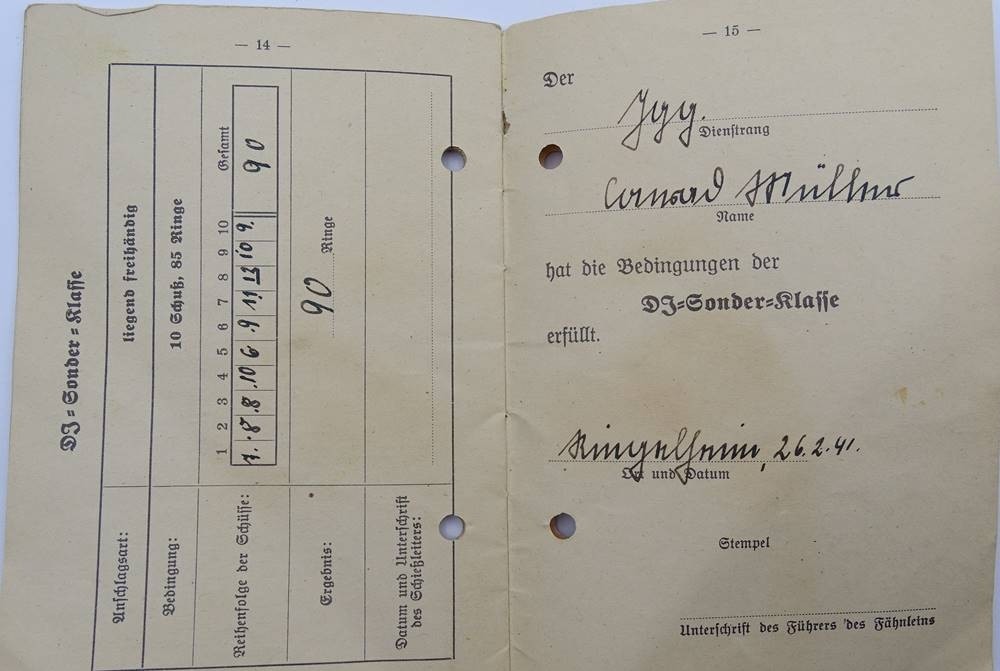 — 14 —
DJ=Sonder=Klasse
Anschlagsart: liegend freihändig
Bedingung: 10 Schuß, 85 Ringe
Reihenfolge der Schüsse: 1 2 3 4 5 6 7 8 9 10 Gesamt
8. 8. 10 6. 9 11. 10 9. 90
Ergebnis: 90 Ringe
Datum und Unterschrift
des Schießleiters:
— 15 —
Der
Jgg.
Dienstrang
Conrad Müller
Name
hat die Bedingungen der
DJ=Sonder=Klasse
erfüllt.
Ringelheim, 26.2.41.
Ort und Datum
Stempel
Unterschrift des Führers des Fähnleins